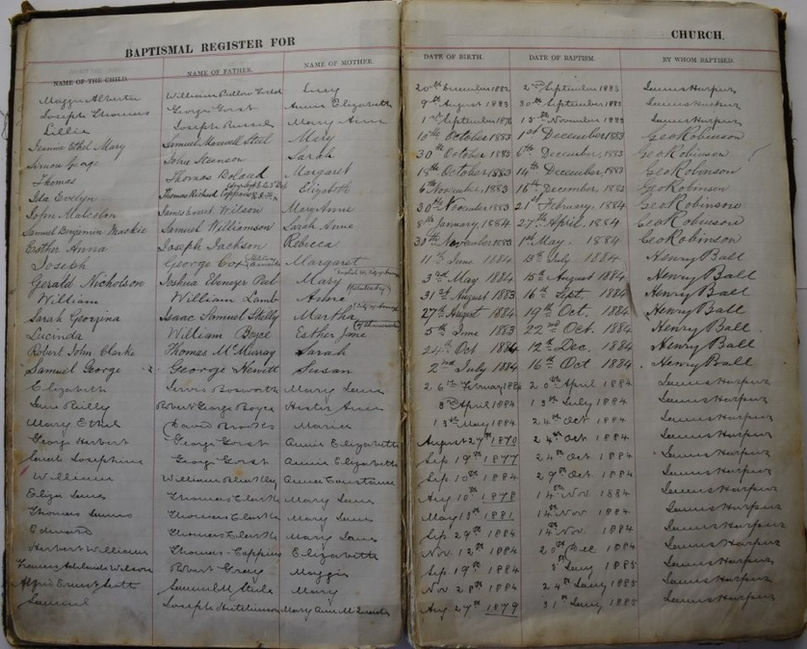 BAPTISMAL REGISTER FOR CHURCH.
NAME OF THE CHILD. NAME OF FATHER. NAME OF MOTHER. DATE OF BIRTH. DATE OF BAPTISM. BY WHOM BAPTISED.
Maggie Alberta William Ludlow Lucy 20th December 1882 2nd September 1883
Joseph Thomas George Gorst Annie Elizabeth 9th August 1883 30th September 1883
Lillie Joseph Russel Mary Ann 1st September 1883
Jeannie Ethel Mary Samuel Maxwell Steel Mary 10th October 1883 1st December 1883 Geo Robinson
Simon George John Stenson Sarah 30th October 1883 6th December 1883 Geo Robinson
Thomas Thomas Boland Margaret 19th October 1883 14th December 1883 Geo Robinson
Ida Evelyn Thomas Richard Elizabeth 6th November 1883 16th December 1883 Geo Robinson
John Malcolm James Ernest Wilson Mary Anne 30th November 1883 21st February 1884 Geo Robinson
Samuel Benjamin Mackie Samuel Williamson Sarah Anne 8th January 1884 27th April 1884 Geo Robinson
Esther Anna Joseph Jackson Rebecca 30th November 1883 1st May 1884 Geo Robinson
Joseph George Cox Margaret 11th June 1884 13th July 1884 Henry Ball
Gerald Nicholson Joshua Ebenezer Peel Mary 3rd May 1884 15th August 1884 Henry Ball
William William Lamb Anne 31st August 1883 16th Sept. 1884 Henry Ball
Sarah Georgina Isaac Samuel Skelly Martha 27th August 1884 19th Oct. 1884 Henry Ball
Lucinda William Bryce Esther Jane 5th June 1883 22nd Oct. 1884 Henry Ball
Robert John Clarke Thomas McMurray Sarah 24th Oct 1884 12th Dec. 1884 Henry Ball
Samuel George George Hewitt Susan 2nd July 1884 16th Oct 1884 Henry Ball
Elizabeth James Bosworth Mary Jane 26th February 1884 20th April 1884
Jane Reilly Robert George Boyce Hester Ann 3rd April 1884 13th July 1884
Mary Ethel David Brookes Maria 13th May 1884 24th Oct 1884
George Herbert George Gorst Annie Elizabeth August 27th 1870 24th Oct 1884
Sarah Josephine George Gorst Annie Elizabeth Sep 19th 1877 24th Oct 1884
William William Annie Constance Sep 10th 1884 29th Oct 1884
Eliza Jane Thomas Clarke Mary Jane Aug 10th 1878 14th Nov 1884
Thomas James Thomas Clarke Mary Jane May 13th 1881 14th Nov 1884
Edward Thomas Clarke Mary Jane Sep 29th 1884 14th Nov. 1884
Herbert William Thomas Coppins Elizabeth Nov 12th 1884 20th Dec 1884
Francis Adelaide Wilson Robert Greig Maggie Sep 19th 1884 1885
Alfred Ernest Scott Samuel M Steele Mary Nov 28th 1884 24th Jany 1885
Samuel Joseph Hutchinson Mary Ann Aug 27th 1879 31st Jany 1885